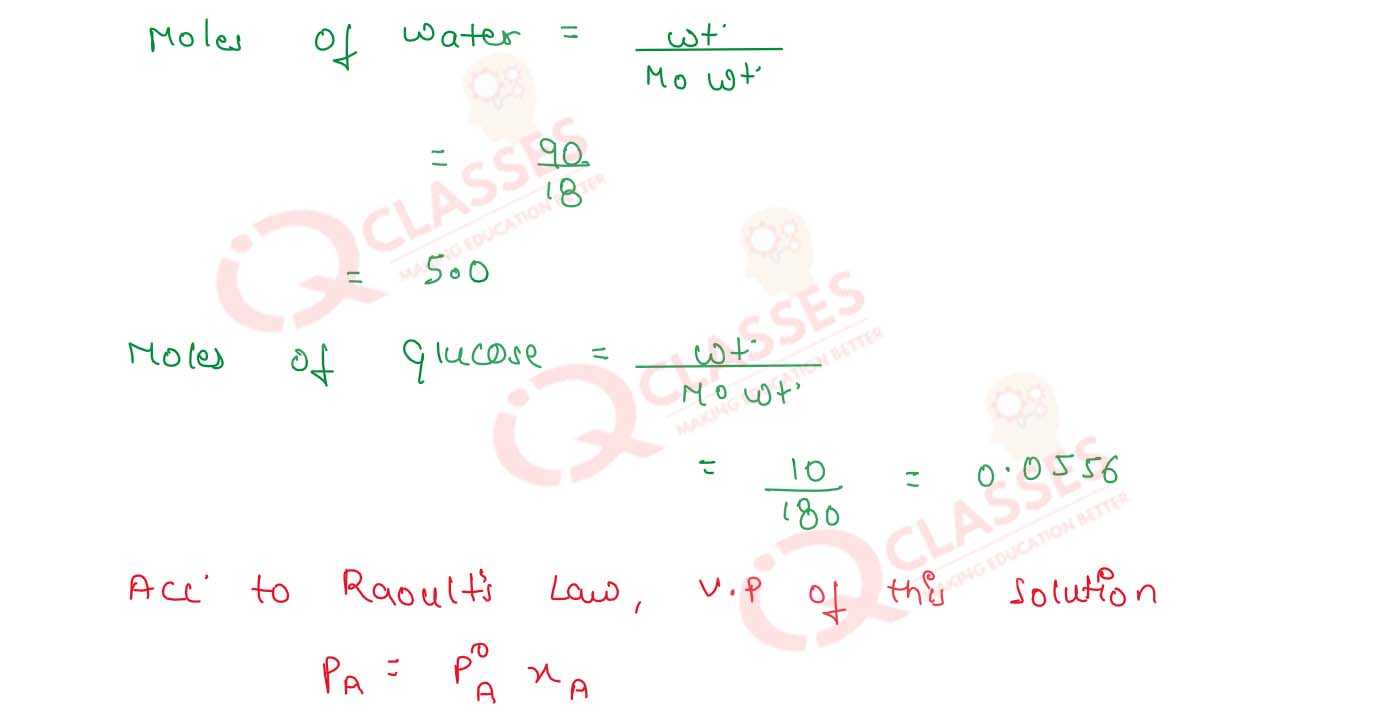 Moles of water = wt. / Mo wt.
= 90 / 18
= 5.0
Moles of glucose = wt. / Mo wt.
= 10 / 180 = 0.0556
Acc. to Raoult's Law, V.P of this solution
P_A = P°_A x_A
iQ CLASSES
MAKING EDUCATION BETTER
iQ CLASSES
MAKING EDUCATION BETTER
iQ CLASSES
MAKING EDUCATION BETTER